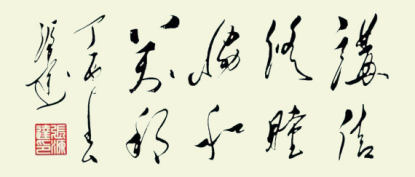 講信
修睦
協和
萬邦
丁酉春